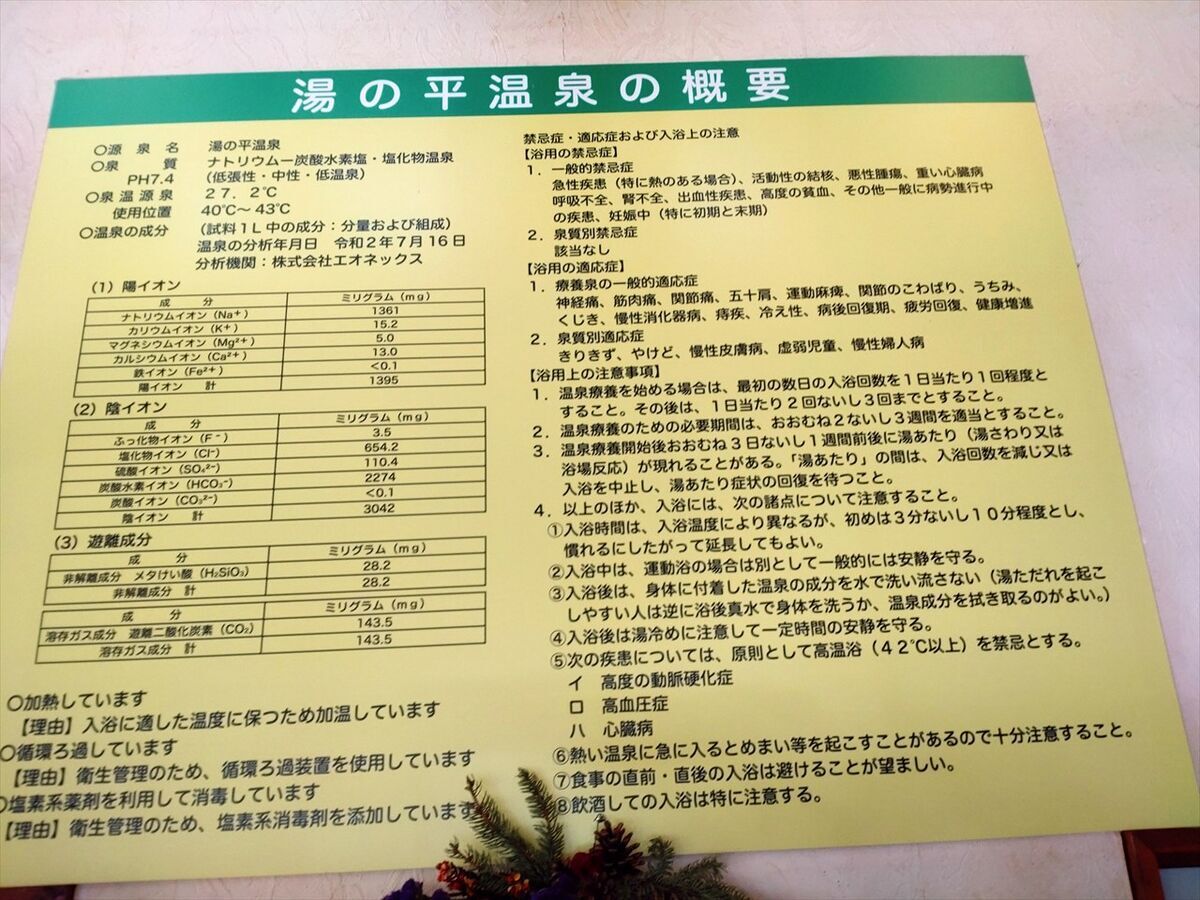 湯の平温泉の概要
○源泉名 湯の平温泉
○泉質 ナトリウムー炭酸水素塩・塩化物温泉
PH7.4 (低張性・中性・低温泉)
○泉温源泉 27.2℃
使用位置 40℃～43℃
○温泉の成分 (試料1L中の成分:分量および組成)
温泉の分析年月日 令和2年7月16日
分析機関:株式会社エオネックス
(1)陽イオン
成分 ミリグラム(mg)
ナトリウムイオン(Na⁺) 1361
カリウムイオン(K⁺) 15.2
マグネシウムイオン(Mg²⁺) 5.0
カルシウムイオン(Ca²⁺) 13.0
鉄イオン(Fe²⁺) <0.1
陽イオン 計 1395
(2)陰イオン
成分 ミリグラム(mg)
ふっ化物イオン(F⁻) 3.5
塩化物イオン(Cl⁻) 654.2
硫酸イオン(SO₄²⁻) 110.4
炭酸水素イオン(HCO₃⁻) 2274
炭酸イオン(CO₃²⁻) <0.1
陰イオン 計 3042
(3)遊離成分
成分 ミリグラム(mg)
非解離成分 メタけい酸(H₂SiO₃) 28.2
非解離成分 計 28.2
成分 ミリグラム(mg)
溶存ガス成分 遊離二酸化炭素(CO₂) 143.5
溶存ガス成分 計 143.5
○加熱しています
【理由】入浴に適した温度に保つため加温しています
○循環ろ過しています
【理由】衛生管理のため、循環ろ過装置を使用しています
○塩素系薬剤を利用して消毒しています
【理由】衛生管理のため、塩素系消毒剤を添加しています
禁忌症・適応症および入浴上の注意
【浴用の禁忌症】
1．一般的禁忌症
急性疾患(特に熱のある場合)、活動性の結核、悪性腫瘍、重い心臓病
呼吸不全、腎不全、出血性疾患、高度の貧血、その他一般に病勢進行中
の疾患、妊娠中(特に初期と末期)
2．泉質別禁忌症
該当なし
【浴用の適応症】
1．療養泉の一般的適応症
神経痛、筋肉痛、関節痛、五十肩、運動麻痺、関節のこわばり、うちみ、
くじき、慢性消化器病、痔疾、冷え性、病後回復期、疲労回復、健康増進
2．泉質別適応症
きりきず、やけど、慢性皮膚病、虚弱児童、慢性婦人病
【浴用上の注意事項】
1．温泉療養を始める場合は、最初の数日の入浴回数を1日当たり1回程度と
すること。その後は、1日当たり2回ないし3回までとすること。
2．温泉療養のための必要期間は、おおむね2ないし3週間を適当とすること。
3．温泉療養開始後おおむね3日ないし1週間前後に湯あたり(湯さわり又は
浴場反応)が現れることがある。「湯あたり」の間は、入浴回数を減じ又は
入浴を中止し、湯あたり症状の回復を待つこと。
4．以上のほか、入浴には、次の諸点について注意すること。
①入浴時間は、入浴温度により異なるが、初めは3分ないし10分程度とし、
慣れるにしたがって延長してもよい。
②入浴中は、運動浴の場合は別として一般的には安静を守る。
③入浴後は、身体に付着した温泉の成分を水で洗い流さない(湯ただれを起こ
しやすい人は逆に浴後真水で身体を洗うか、温泉成分を拭き取るのがよい。)
④入浴後は湯冷めに注意して一定時間の安静を守る。
⑤次の疾患については、原則として高温浴(42℃以上)を禁忌とする。
イ 高度の動脈硬化症
ロ 高血圧症
ハ 心臓病
⑥熱い温泉に急に入るとめまい等を起こすことがあるので十分注意すること。
⑦食事の直前・直後の入浴は避けることが望ましい。
⑧飲酒しての入浴は特に注意する。